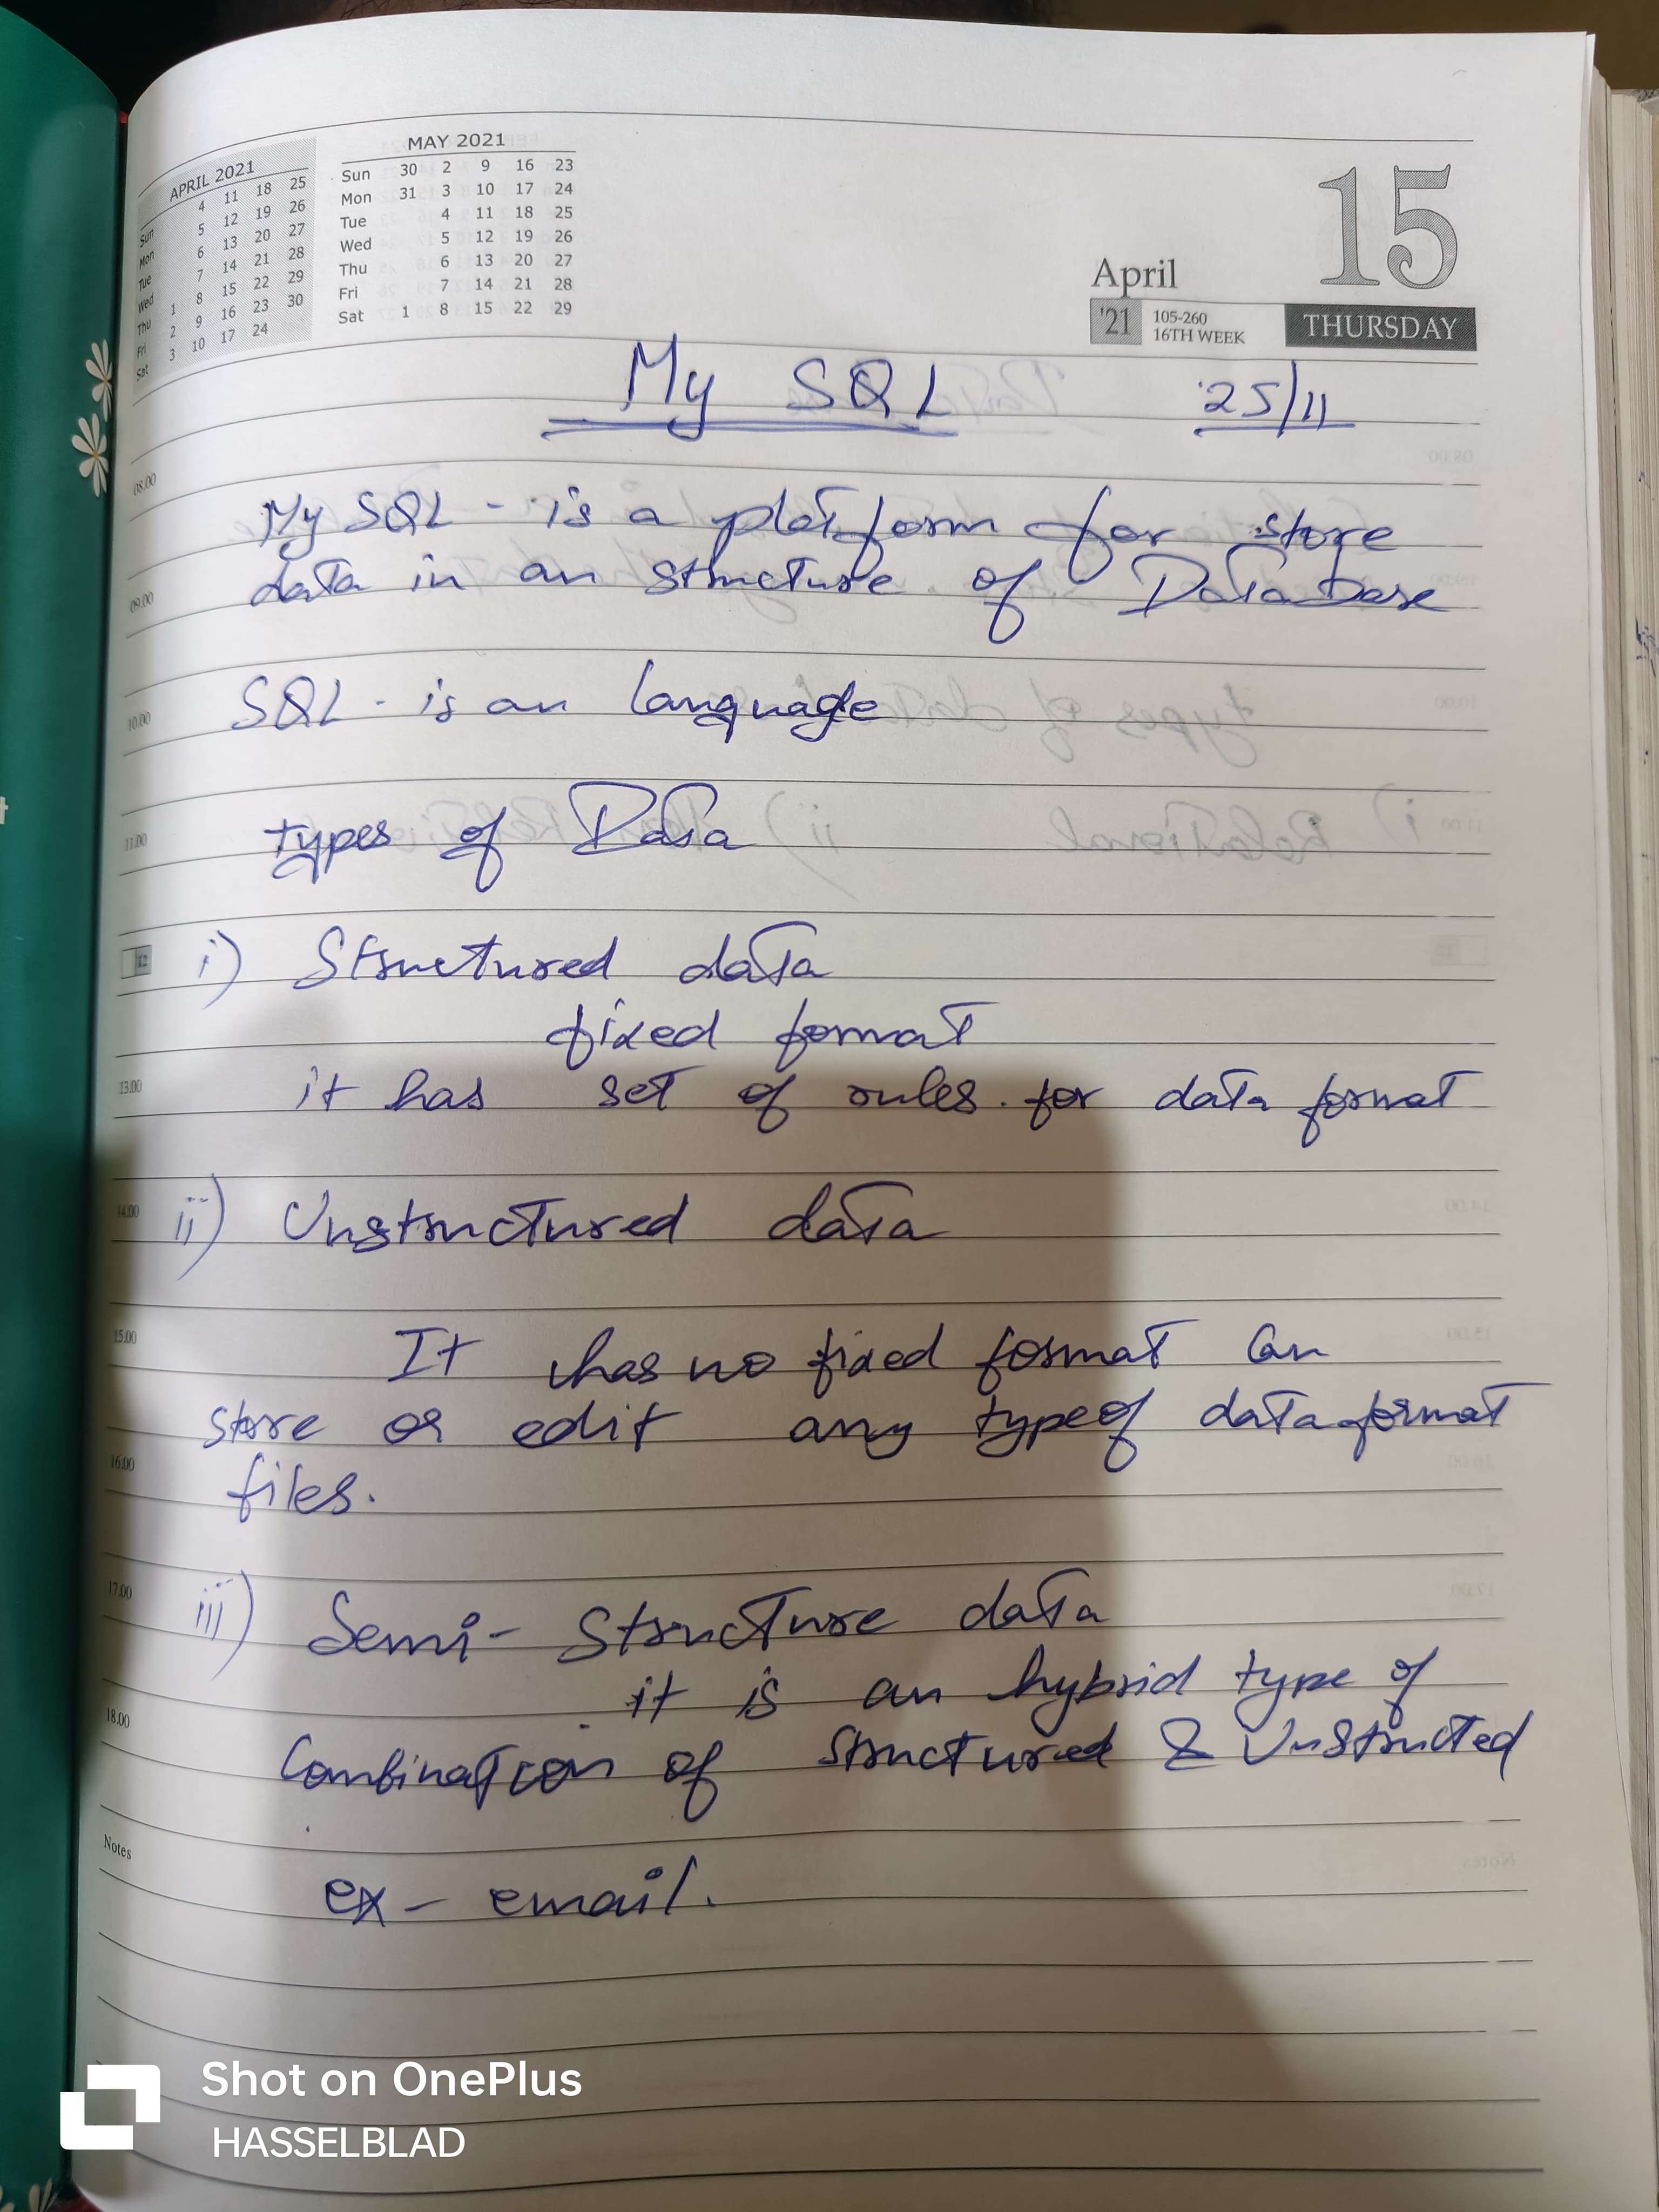 APRIL 2021
Sun 4 11 18 25
Mon 5 12 19 26
Tue 6 13 20 27
Wed 7 14 21 28
Thu 1 8 15 22 29
Fri 2 9 16 23 30
Sat 3 10 17 24
MAY 2021
Sun 30 2 9 16 23
Mon 31 3 10 17 24
Tue 4 11 18 25
Wed 5 12 19 26
Thu 6 13 20 27
Fri 7 14 21 28
Sat 1 8 15 22 29
15
April
'21 105-260
16TH WEEK
THURSDAY
My SQL 25/11
08.00
My SQL - is a platform for store
09.00 data in an structure of Database
10.00 SQL - is an language
11.00 types of Data
12 i) Structured data
fixed format
13.00 it has set of rules. for data format
14.00 ii) Unstructured data
15.00 It has no fixed format Can
store or edit any type of data format
16.00 files.
17.00 iii) Semi- Structure data
it is an hybrid type of
18.00 Combination of structured & Unstructed
Notes
ex - email.
Shot on OnePlus
HASSELBLAD